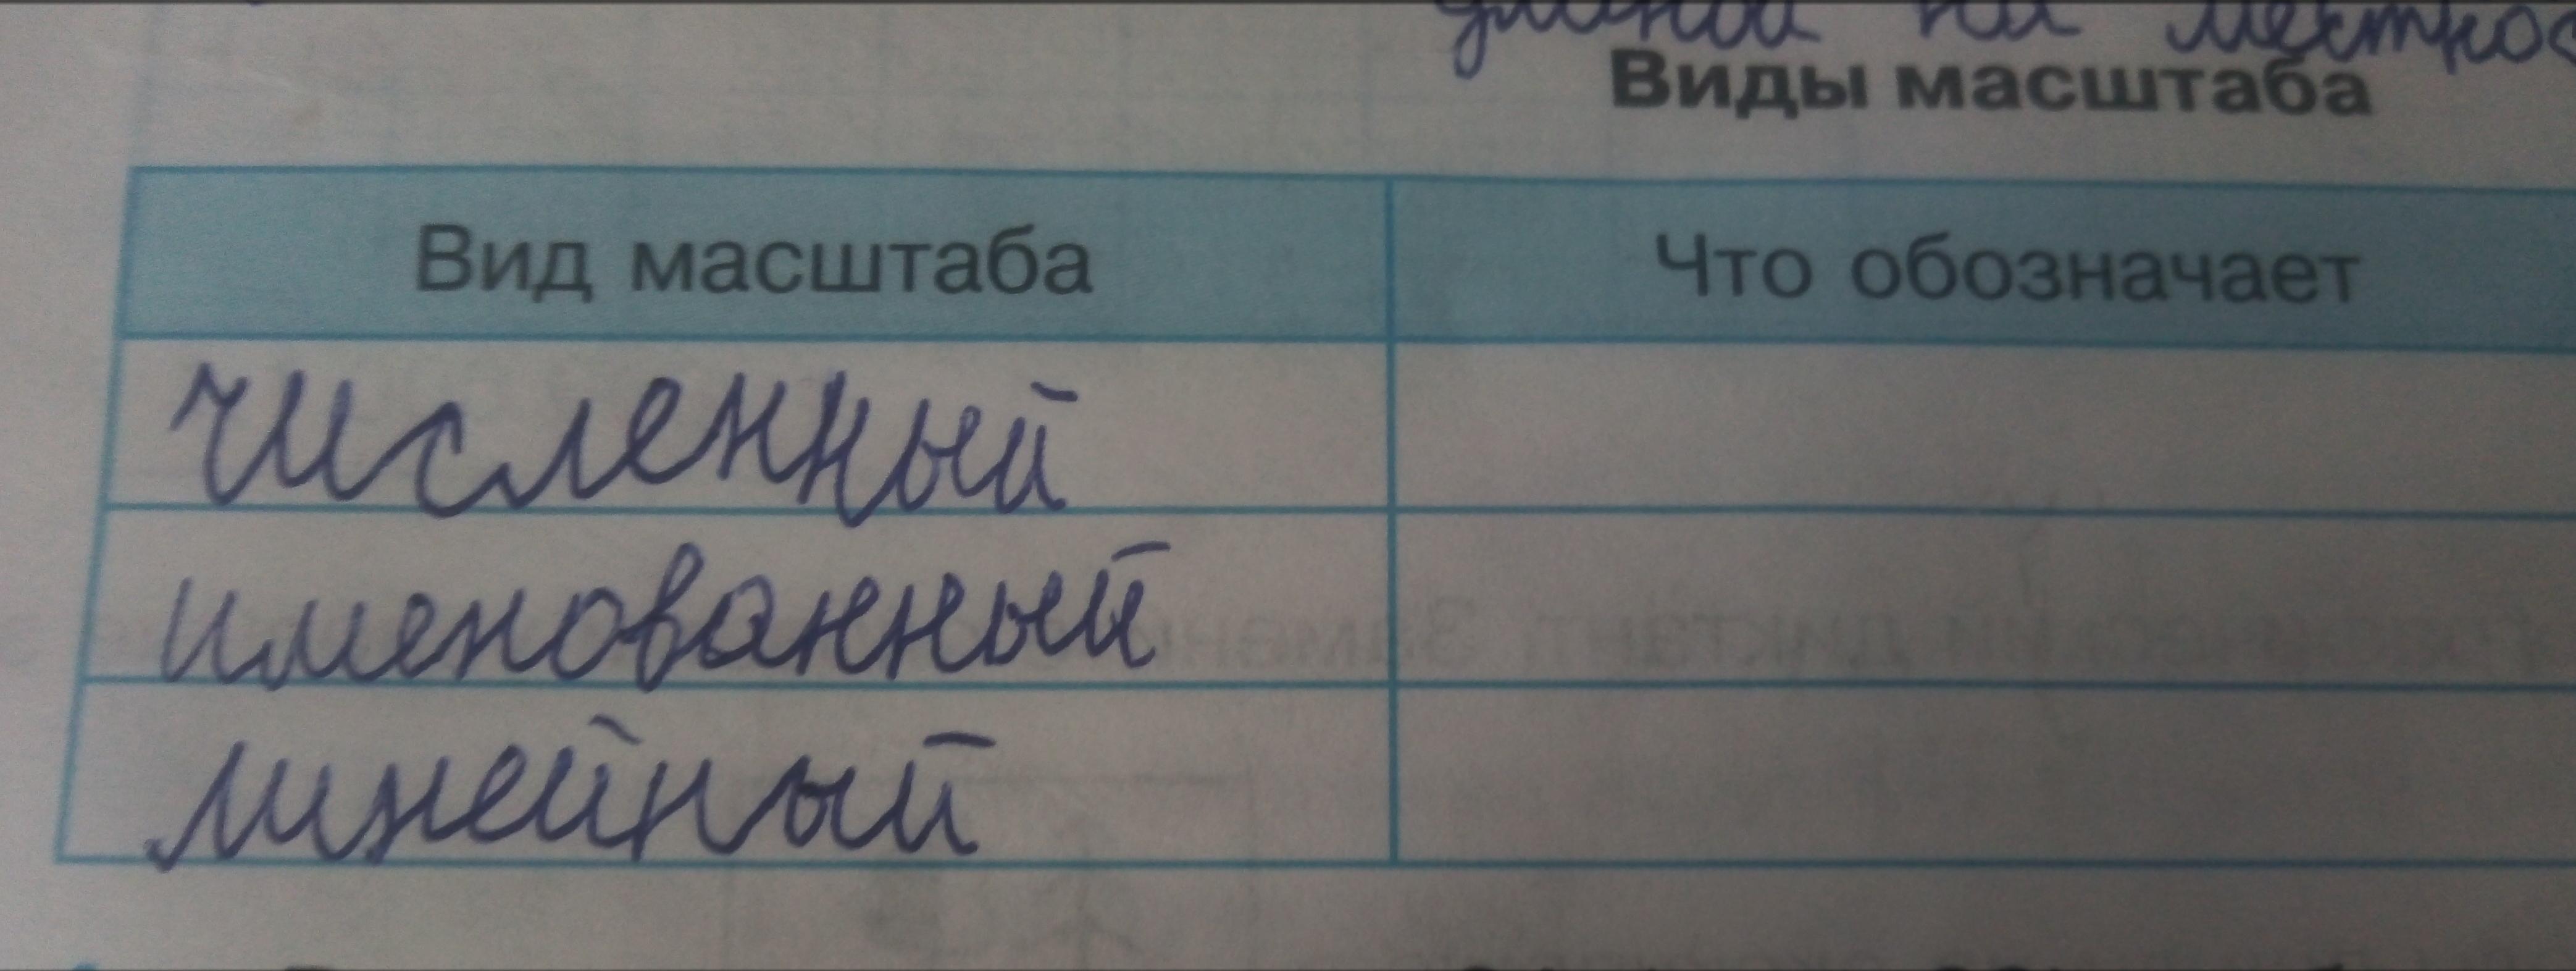 длиной на местнос
Виды масштаба
Вид масштаба
Что обозначает
численный
именованный
линейный